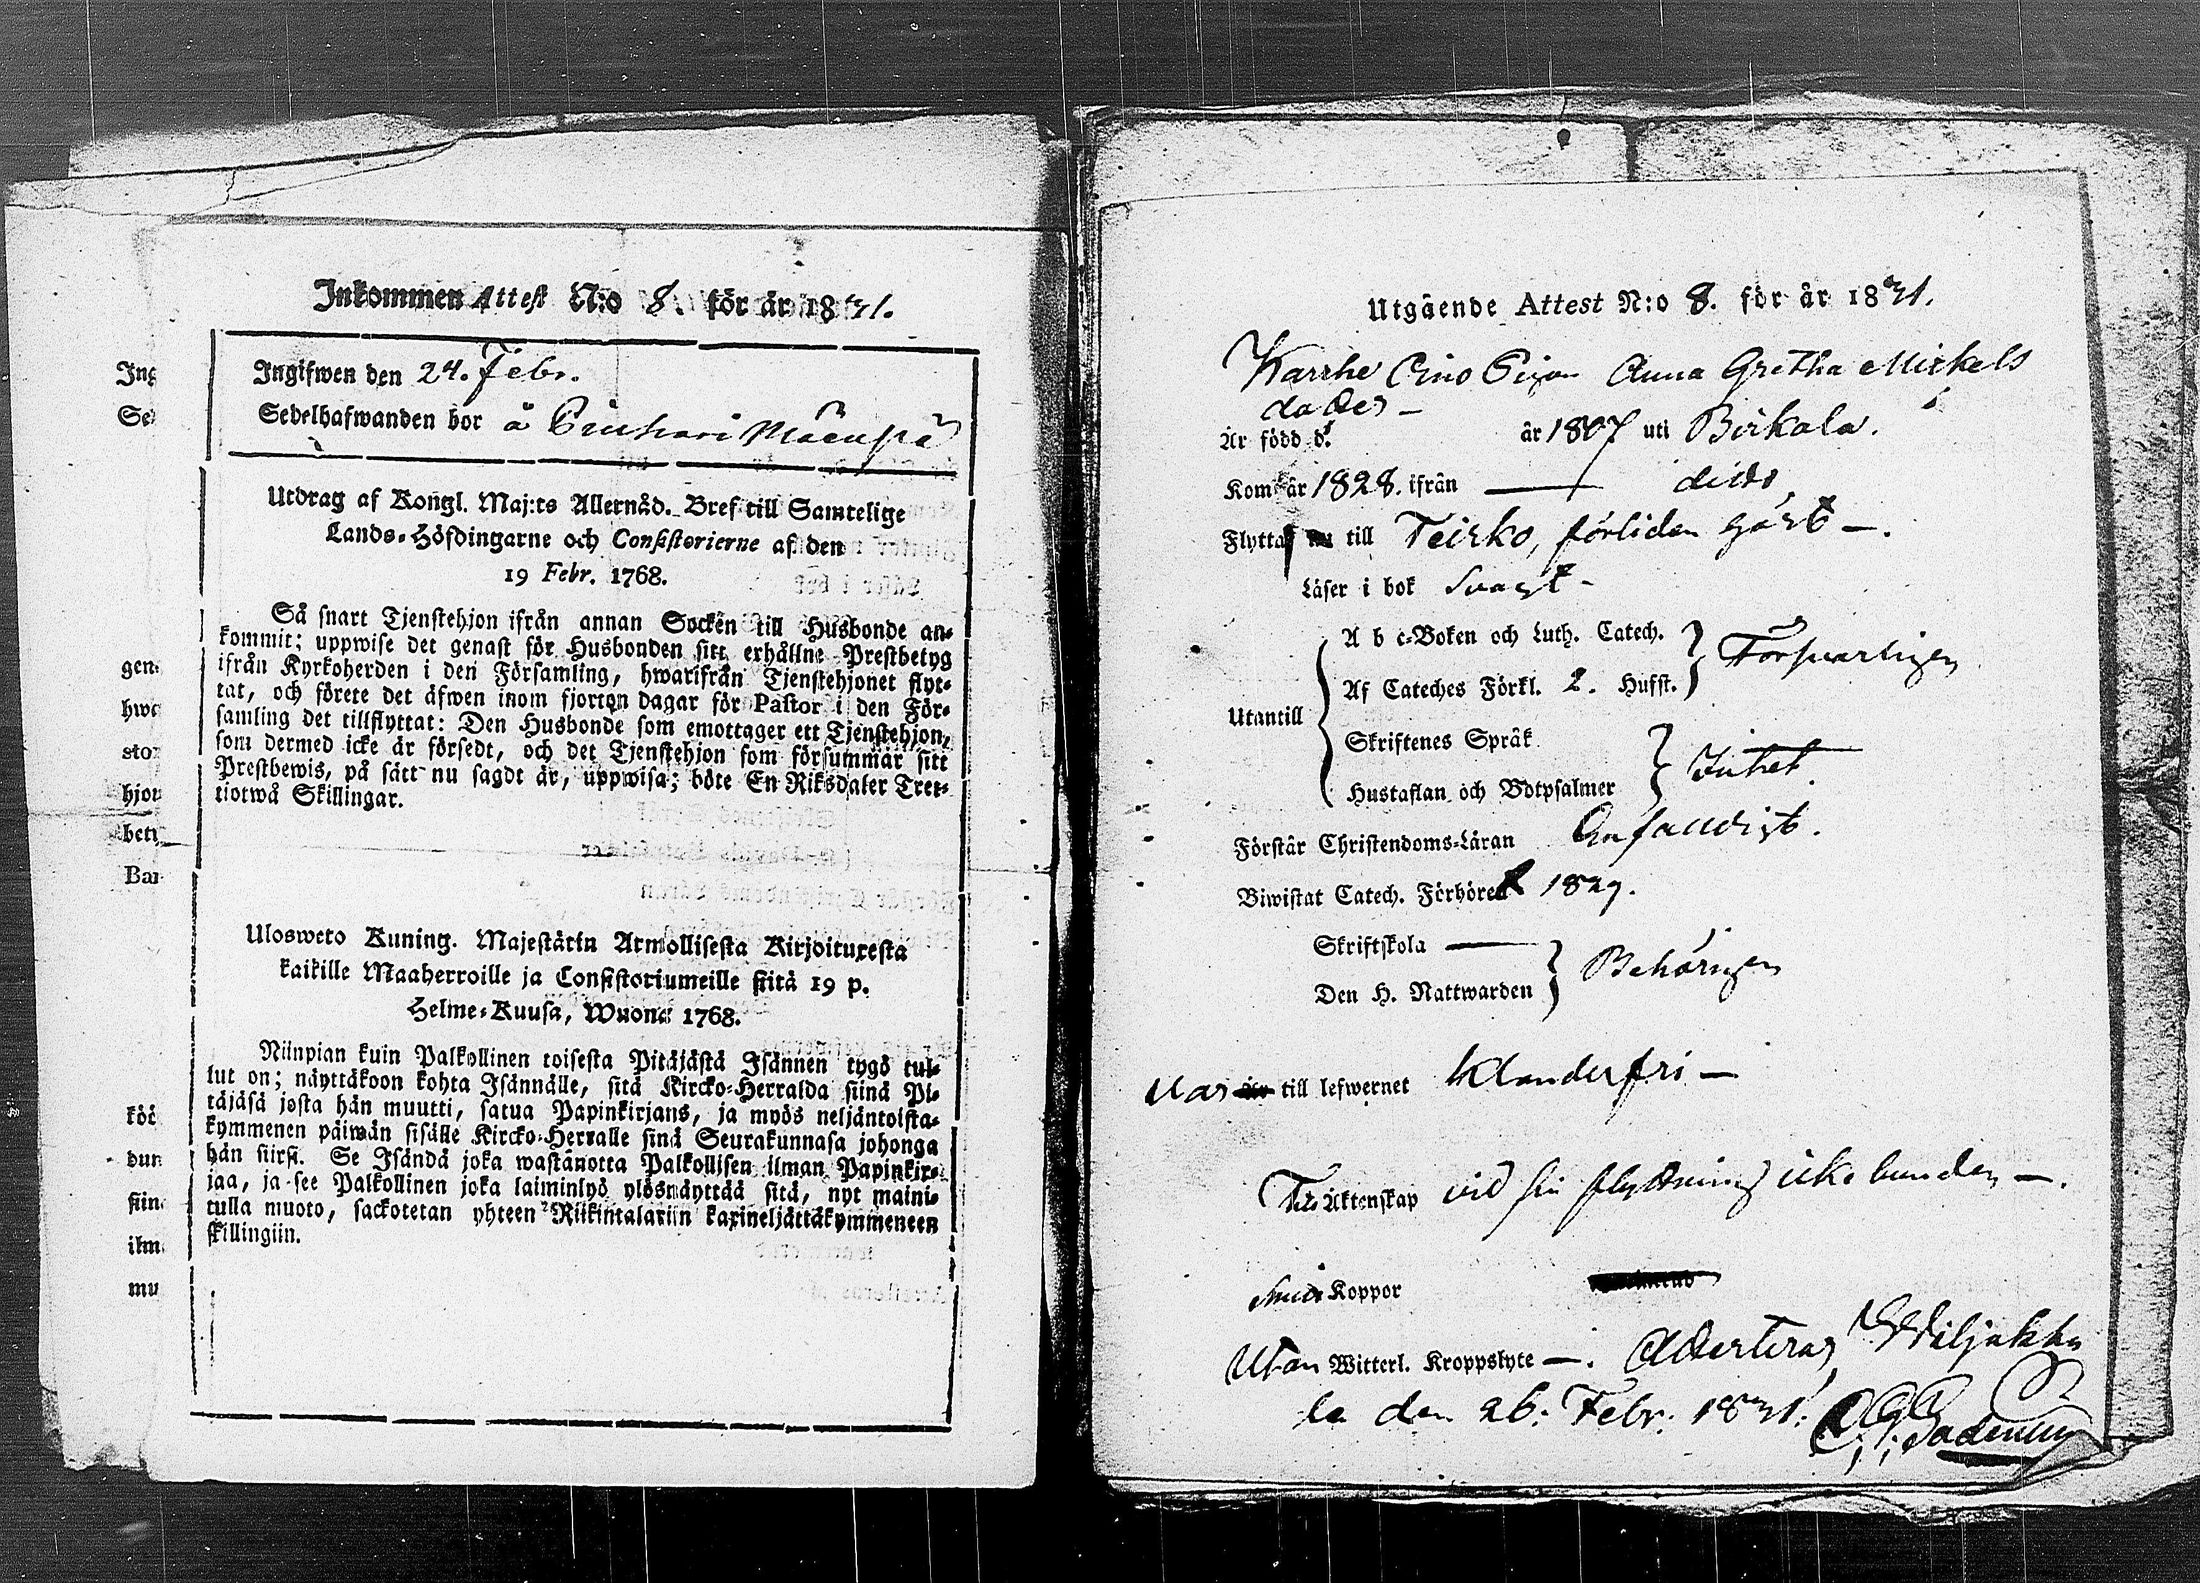 Inkommen Attest N:o 8. för år 1831.
Ingifwen den 24. Febr.
Sedelhafwanden bor å
Utdrag af Kongl. Maj:ts Allernåd. Bref till Samtelige
Lands-Höfdingarne och Consistorierne af den
19 Febr. 1768.
Så snart Tjenstehjon ifrån annan Socken till Husbonde an-
kommit; uppwise det genast för Husbonden sitt erhållne Prestbetyg
ifrån Kyrkoherden i den Församling, hwarifrån Tjenstehjonet flyt-
tat, och förete det äfwen inom fjorton dagar för Pastor i den För-
samling det tillflyttat: Den Husbonde som emottager ett Tjenstehjon,
som dermed icke är försedt, och det Tjenstehjon som försummar sitt
Prestbewis, på sätt nu sagdt är, uppwisa; böte En Riksdaler Tret-
tiotwå Skillingar.
Ulosweto Kuning. Majestätin Armollisesta Kirjoituxesta
kaikille Maaherroille ja Consistoriumeille siitä 19 p.
Helme-Kuusa, Wuona 1768.
Niinpian kuin Palkollinen toisesta Pitäjästä Isännen tygö tul-
lut on; näyttäkoon kohta Isännälle, sitä Kircko-Herralda siinä Pi-
täjäsä josta hän muutti, satua Papinkirjans, ja myös neljäntoista-
kymmenen päiwän sisälle Kircko-Herralle sinä Seurakunnasa johonga
hän siirsi. Se Isändä joka wastanotta Palkollisen ilman Papinkir-
jaa, ja see Palkollinen joka laiminlyö ylösnäyttää sitä, nyt maini-
tulla muoto, sackotetan yhteen Riikintalariin kaxineljättäkymmeneen
skillingiin.
Ing
Se
gen
hwa
sto
hjon
bety
Bar
köö
dun
siin
ilm
mu
Utgående Attest N:o 8. för år 1831.
Karrhe Anna Gretha Mickels
dotter
Är född d. år 1807 uti Birkala.
Kom år 1828. ifrån — ditto
Flyttat till Teisko, förliden höst —.
Läser i bok Svagt —
A b c-Boken och Luth. Catech.
Af Cateches Förkl. 2. Hufst.
Försvarligen
Utantill
Skriftenes Språk
Hustaflan och Botpsalmer
Intet.
Förstår Christendoms-Läran Enfaldigt.
Biwistat Catech. Förhöret 1829.
Skriftskola —
Den H. Nattwarden
Behörigen
Var till lefwernet klanderfri —
Till Äktenskap vid sin flyttning icke bunden —.
Koppor
Utan Witterl. Kroppslyte —. Attesteras,
la den 26. Febr. 1831.